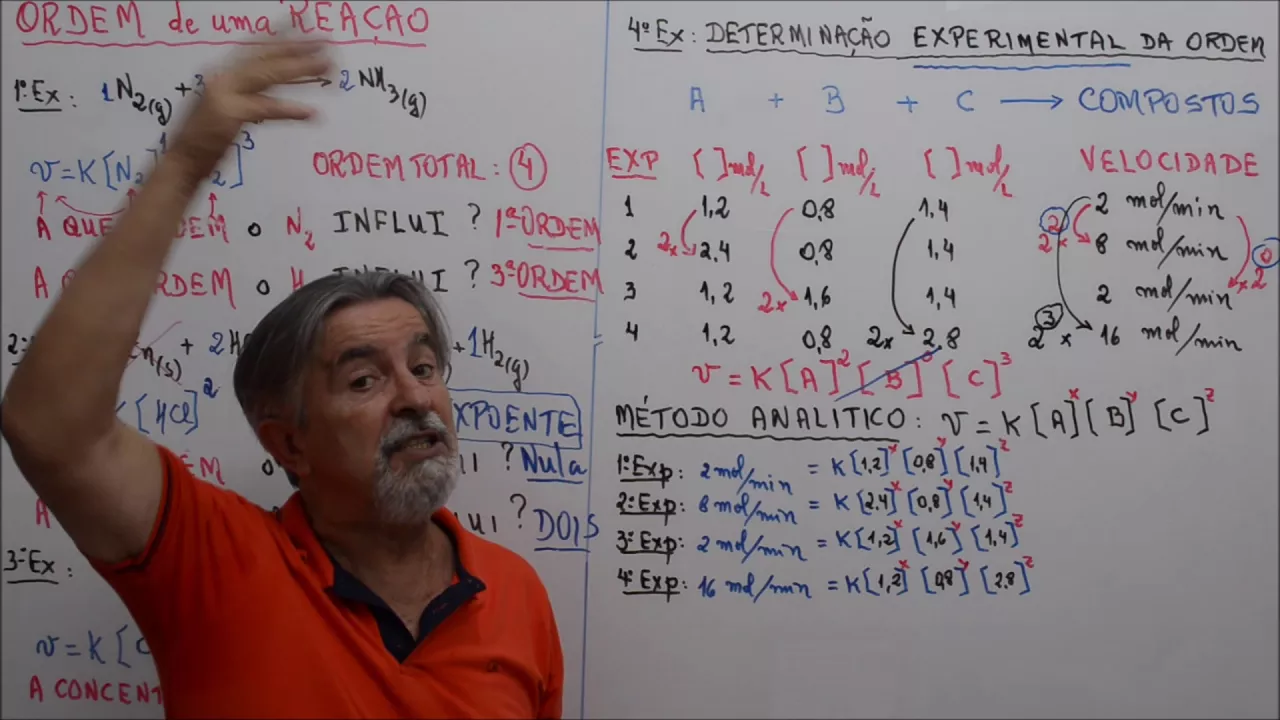 ORDEM de uma REAÇÃO
1º Ex: 1N2(g) + 3 → 2NH3(g)
v=K[N2]1 2]3
ORDEM TOTAL: 4
A QUE DEM o N2 INFLUI ? 1ª ORDEM
A RDEM o H INFLUI ? 3ª ORDEM
2 n(s) + 2H + 1H2(g)
[HCl]2
XPOENTE
EM ? Nula
A UI ? DOIS
3º Ex:
v=K[C
A CONCENT
4º Ex: DETERMINAÇÃO EXPERIMENTAL DA ORDEM
A + B + C → COMPOSTOS
EXP [ ]mol/L [ ]mol/L [ ]mol/L VELOCIDADE
1 1,2 0,8 1,4 2 mol/min
2 2x 2,4 0,8 1,4 2 2x 8 mol/min 0
3 1,2 2x 1,6 1,4 2 mol/min x2
4 1,2 0,8 2x 2,8 2 3 x 16 mol/min
v=K[A]2[B]0[C]3
MÉTODO ANALITICO: V=K[A]x[B]y[C]z
1º Exp: 2 mol/min = K[1,2]x[0,8]y[1,4]z
2º Exp: 8 mol/min = K[2,4]x[0,8]y[1,4]z
3º Exp: 2 mol/min = K[1,2]x[1,6]y[1,4]z
4º Exp: 16 mol/min = K[1,2]x[0,8]y[2,8]z